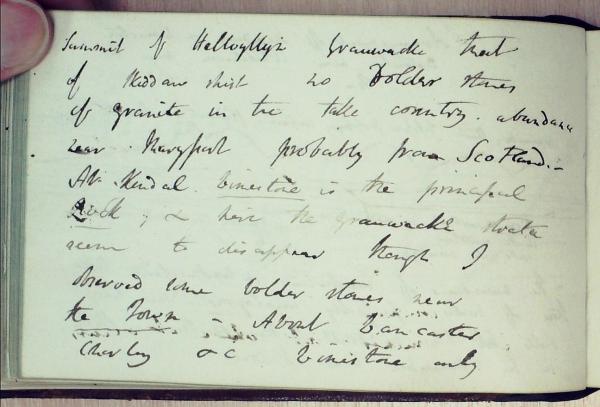 Summit of Hellvyllyn grauwacke that
of Skiddaw shist no Bolder stones
of granite in the lake country. abundana
near Maryport probably from Scotland. -
At Kendal limestone is the principal
Rock; & here the grauwacke strata
seem to disappear though I
observed some bolder stones near
the Town - About Lancaster
Chorley &c limestone only